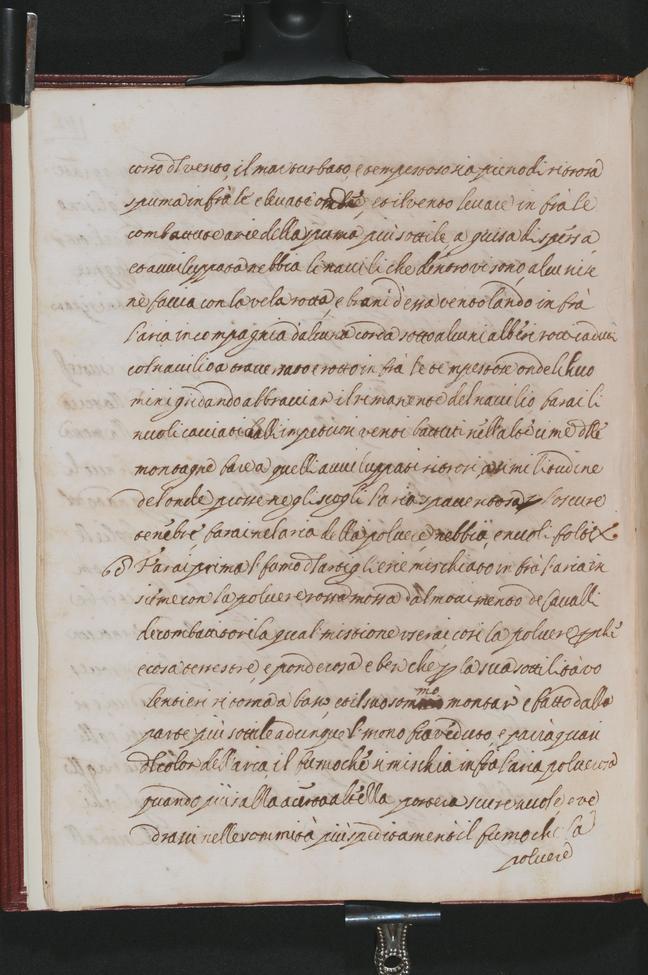 corso d'l vento, il mar turbato, e tempestoso sia pieno di ritrosa
spuma in fra le elevate onde, et il vento levare in fra le
combattute arie della spuma più sottile, a guisa di spessa
et aviluppata nebbia li navili che dentro vi sono, alcuni se
ne faccia con la vela rotta, e brani d'essa ventolando in fra
l'aria in compagnia d'alcuna corda rotta alcuni alberi rotti caduti
col navilio a traversato e rotto in fra le tempestose onde li huo
mini gridando abbracciar il rimanente del navilio farai li
nuvoli cacciati dall'impetuosi venti battuti nell'alte cime delle
montagne fare a quelli aviluppati ritrosi, a similitudine
de l'onde percosse negli scogli l'aria spaventosa p l'oscure
tenebre farai ne l'aria della polvere, nebbia, e nuvoli folti.
Farai prima l' fumo d'l'artiglierie mischiato in fra l'aria in
sieme con la polvere rossa mossa dal movimento de Cavalli
de combattitori la qual mistione userai così la polvere perche
e cosa terrestre e ponderosa e ben che p la sua sottilità vo
lentieri ritorna a basso et il suo sommo montar è fatto dalla
parte più sottile adunque l' meno fia veduto e parrà quasi
d'l color dell'aria il fumo che si mischia in fra l'aria polverosa
quando più s'alla a certa altezza parera scure nuvole e ve
drassi nelle sommità più speditamente il fumo che la
polvere